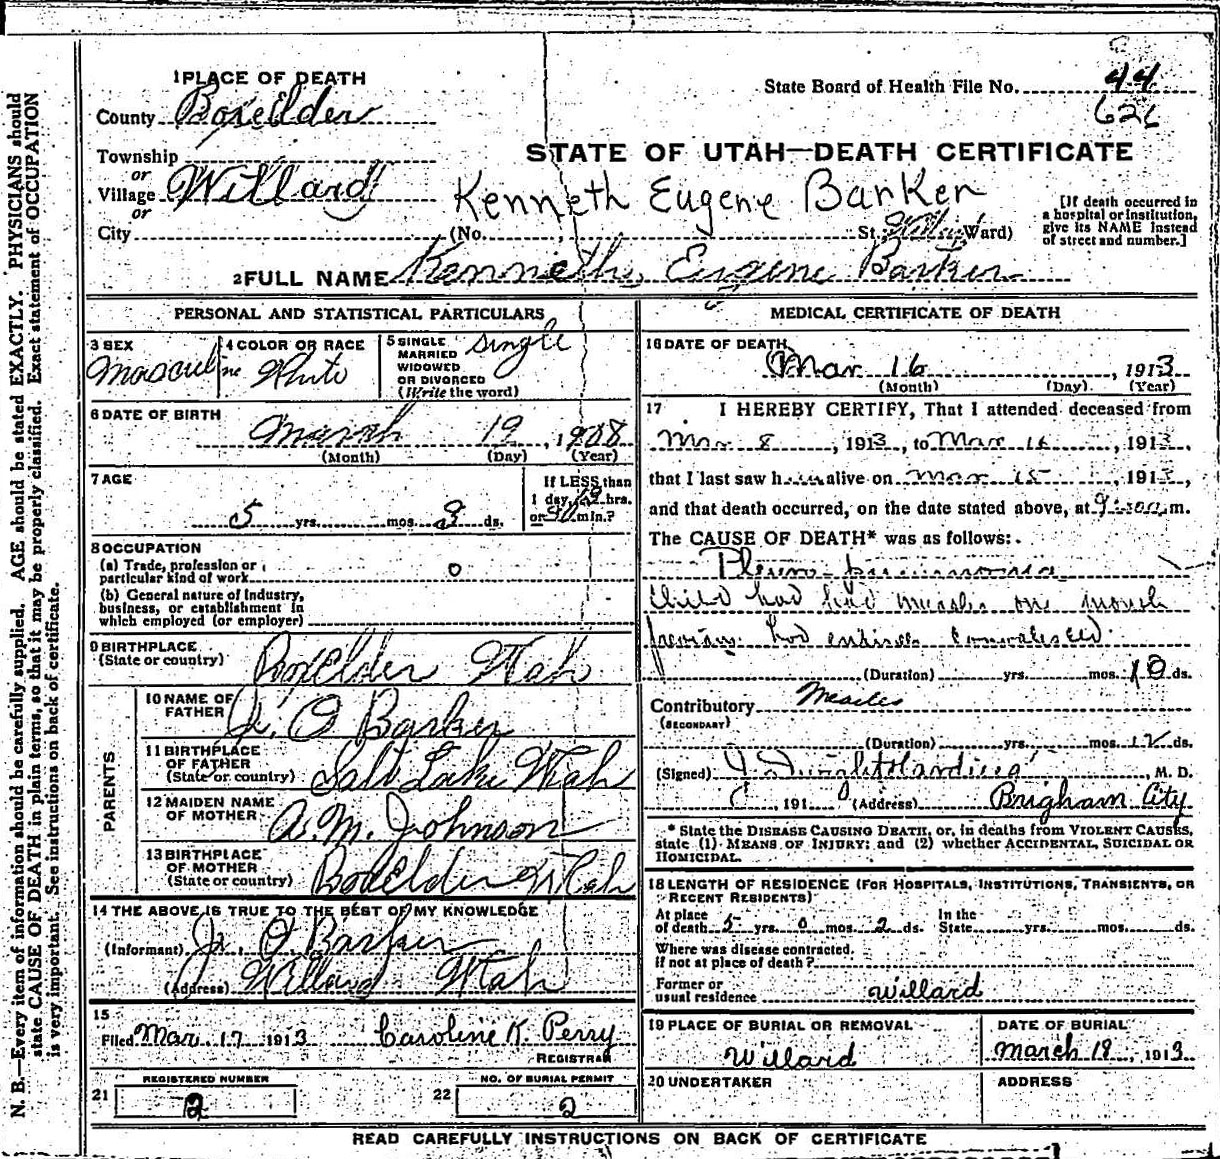 1 PLACE OF DEATH
County Boxeilder
Township
or
Village Willard
or
City
State Board of Health File No. 44
626
STATE OF UTAH—DEATH CERTIFICATE
Kenneth Eugene Barker
(No. St. Ward)
[If death occurred in
a hospital or institution,
give its NAME instead
of street and number.]
2 FULL NAME Kenneth Eugene Barker
PERSONAL AND STATISTICAL PARTICULARS
3 SEX
Masculine
4 COLOR OR RACE
White
5 SINGLE
MARRIED
WIDOWED
OR DIVORCED
(Write the word)
single
6 DATE OF BIRTH
March 19, 1908
(Month) (Day) (Year)
7 AGE
5 yrs. mos. ds.
If LESS than
1 day, hrs.
or min.?
8 OCCUPATION
(a) Trade, profession or
particular kind of work o
(b) General nature of industry,
business, or establishment in
which employed (or employer)
9 BIRTHPLACE
(State or country) Boxelder Utah
PARENTS
10 NAME OF
FATHER O Barker
11 BIRTHPLACE
OF FATHER
(State or country) Salt Lake Utah
12 MAIDEN NAME
OF MOTHER A. M. Johnson
13 BIRTHPLACE
OF MOTHER
(State or country) Boxelder Utah
14 THE ABOVE IS TRUE TO THE BEST OF MY KNOWLEDGE
(Informant) O Barker
(Address) Willard Utah
15
Filed Mar 17 1913 Caroline K. Perry
REGISTRAR
21 REGISTERED NUMBER
2
22 NO. OF BURIAL PERMIT
2
MEDICAL CERTIFICATE OF DEATH
16 DATE OF DEATH
Mar 16, 1913
(Month) (Day) (Year)
17 I HEREBY CERTIFY, That I attended deceased from
Mar 8, 1913, to Mar 16, 1913,
that I last saw him alive on Mar 15, 1913,
and that death occurred, on the date stated above, at m.
The CAUSE OF DEATH* was as follows:
Pleuro pneumonia
Child had had measles one month
previous had entirely convalesced
(Duration) yrs. mos. 10 ds.
Contributory Measles
(SECONDARY)
(Duration) yrs. mos. 12 ds.
(Signed) Harding, M. D.
, 191 (Address) Brigham City
* State the DISEASE CAUSING DEATH, or, in deaths from VIOLENT CAUSES,
state (1) MEANS OF INJURY; and (2) whether ACCIDENTAL, SUICIDAL OR
HOMICIDAL.
18 LENGTH OF RESIDENCE (FOR HOSPITALS, INSTITUTIONS, TRANSIENTS, OR
RECENT RESIDENTS)
At place
of death 5 yrs. 0 mos. 2 ds.
In the
State yrs. mos. ds.
Where was disease contracted.
if not at place of death?
Former or
usual residence Willard
19 PLACE OF BURIAL OR REMOVAL
Willard
DATE OF BURIAL
March 19, 1913
20 UNDERTAKER
ADDRESS
READ CAREFULLY INSTRUCTIONS ON BACK OF CERTIFICATE
N. B.—Every item of information should be carefully supplied. AGE should be stated EXACTLY. PHYSICIANS should
state CAUSE OF DEATH in plain terms, so that it may be properly classified. Exact statement of OCCUPATION
is very important. See instructions on back of certificate.